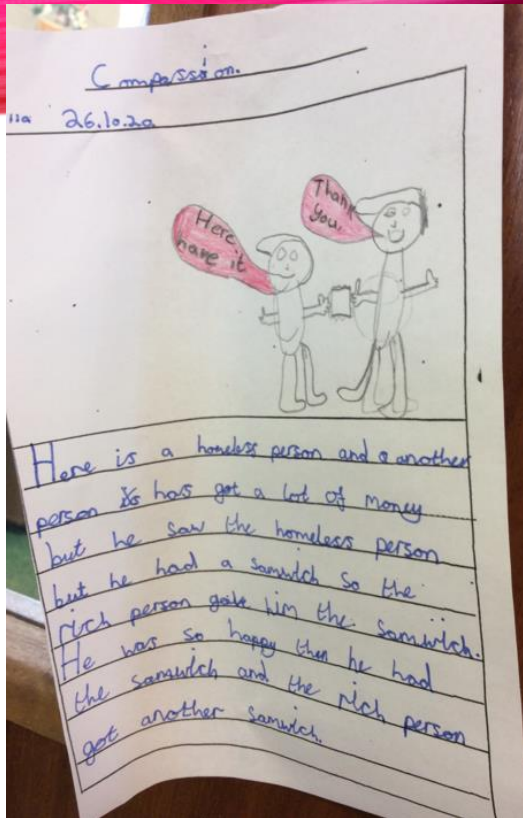 Compassion.
26.10.20
Here,
have it
Thank
you.
Here is a homeless person and a another
person has got a lot of money
but he saw the homeless person
but he had a samwich so the
rich person gave him the samwich.
He was so happy then he had
the samwich and the rich person
got another samwich.